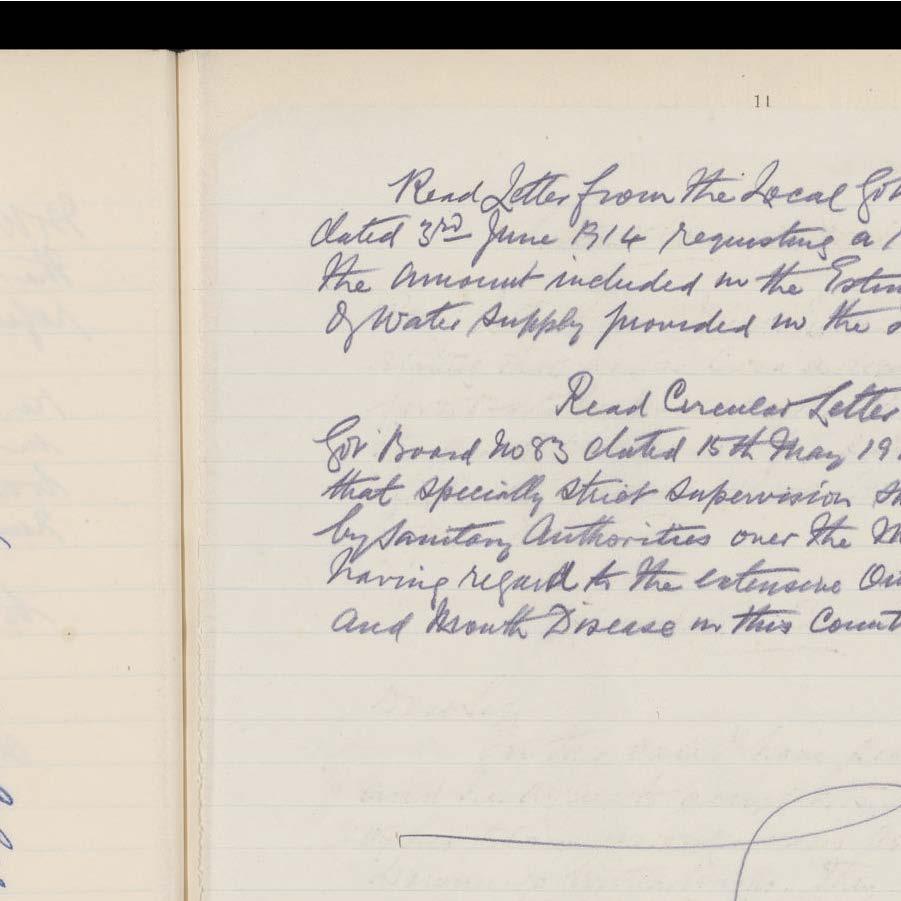 11
Read Letter from the Local Gov
dated 3rd June 1914 requesting a
the amount included in the Estim
of Water Supply provided in the
Read Circular Letter
Gov Board No 83 dated 15th May 19
that specially strict supervision sh
by Sanitary Authorities over the M
having regard to the extensive Ou
and Mouth Disease in this Count